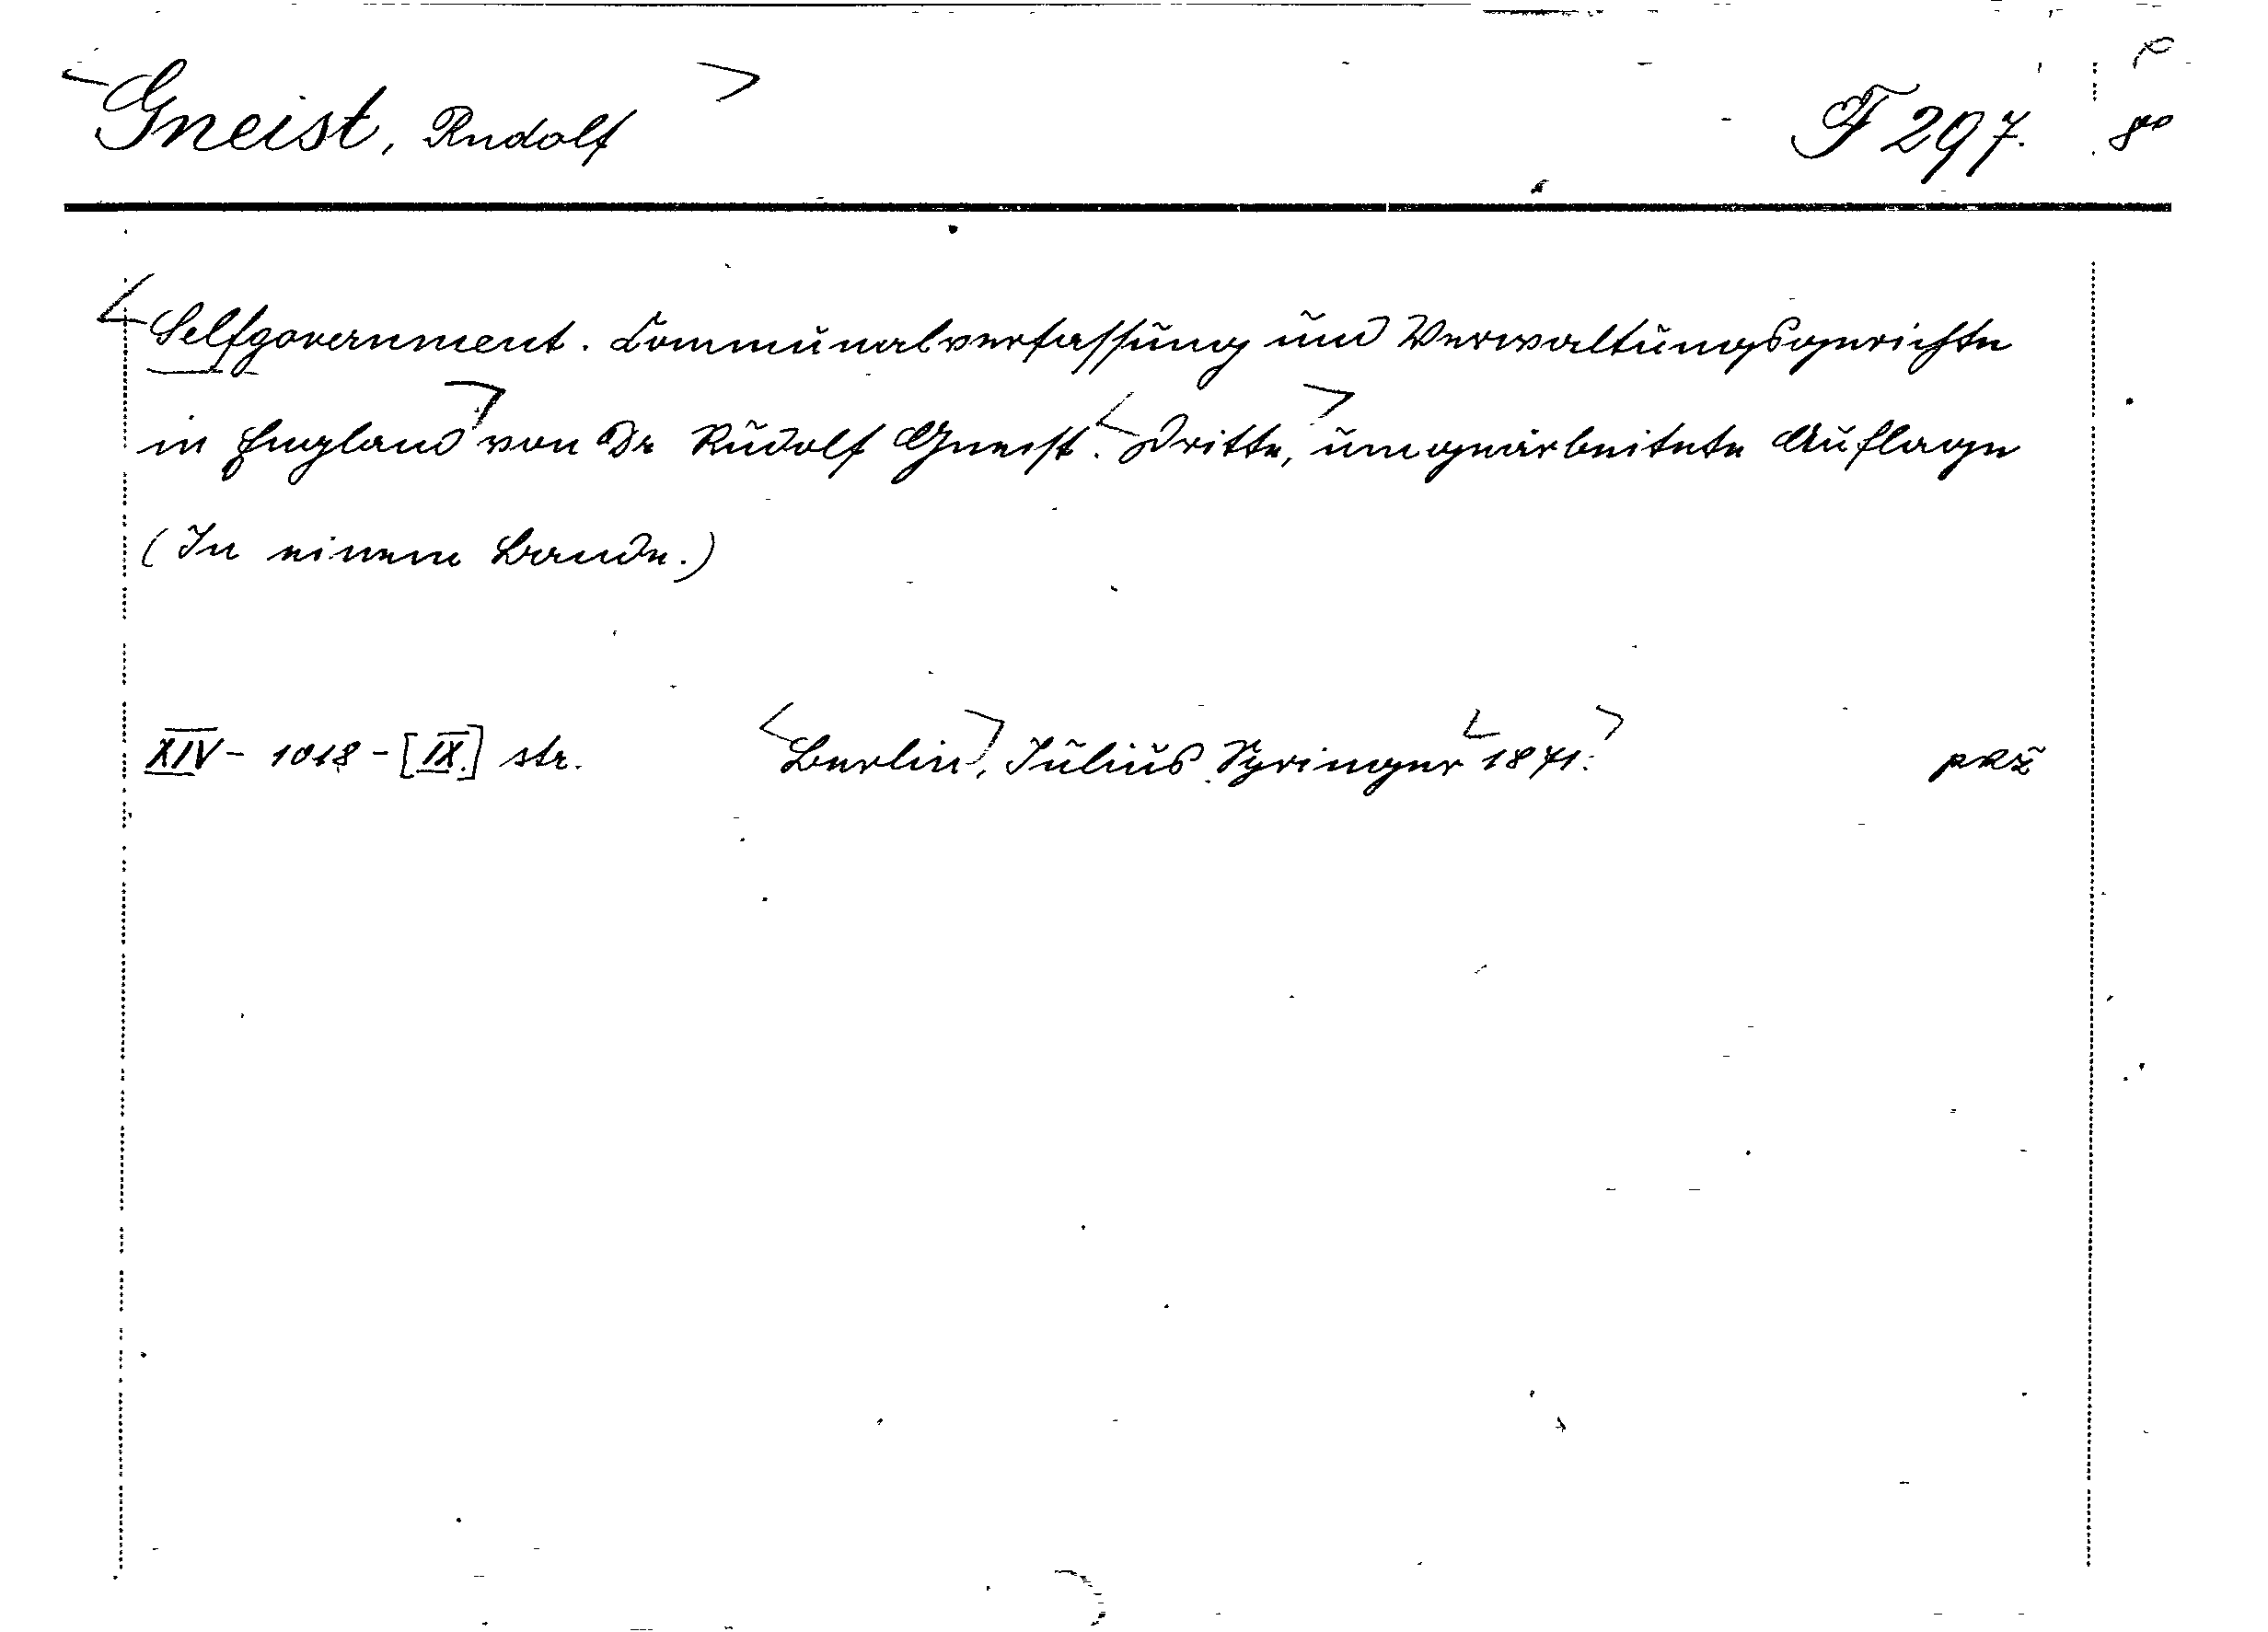 Gneist, Rudolf F 297. 8⁰
Selfgovernment. Communalverfassung und Verwaltungsgerichte
in England von Dr Rudolf Gneist. Dritte, umgearbeitete Auflage
(In einem Bande.)
XIV - 1018 - [IX.] str. Berlin, Julius Springer 1871.